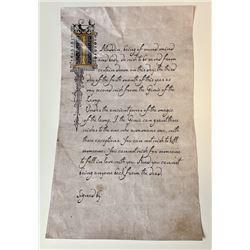 I Aladdin, being of sound mind
and body, do wish to be freed from
certain doom on this day, the third
day of the forth month of this year as
my second wish from the Genie of
the Lamp.
Under the ancient power of the magic
of the lamp, I the Genie can grant three
wishes to the one who summons me, with
three exceptions. You can not wish to kill
someone. You cannot wish for someone
to fall in love with you. And you cannot
bring anyone back from the dead.
Signed by